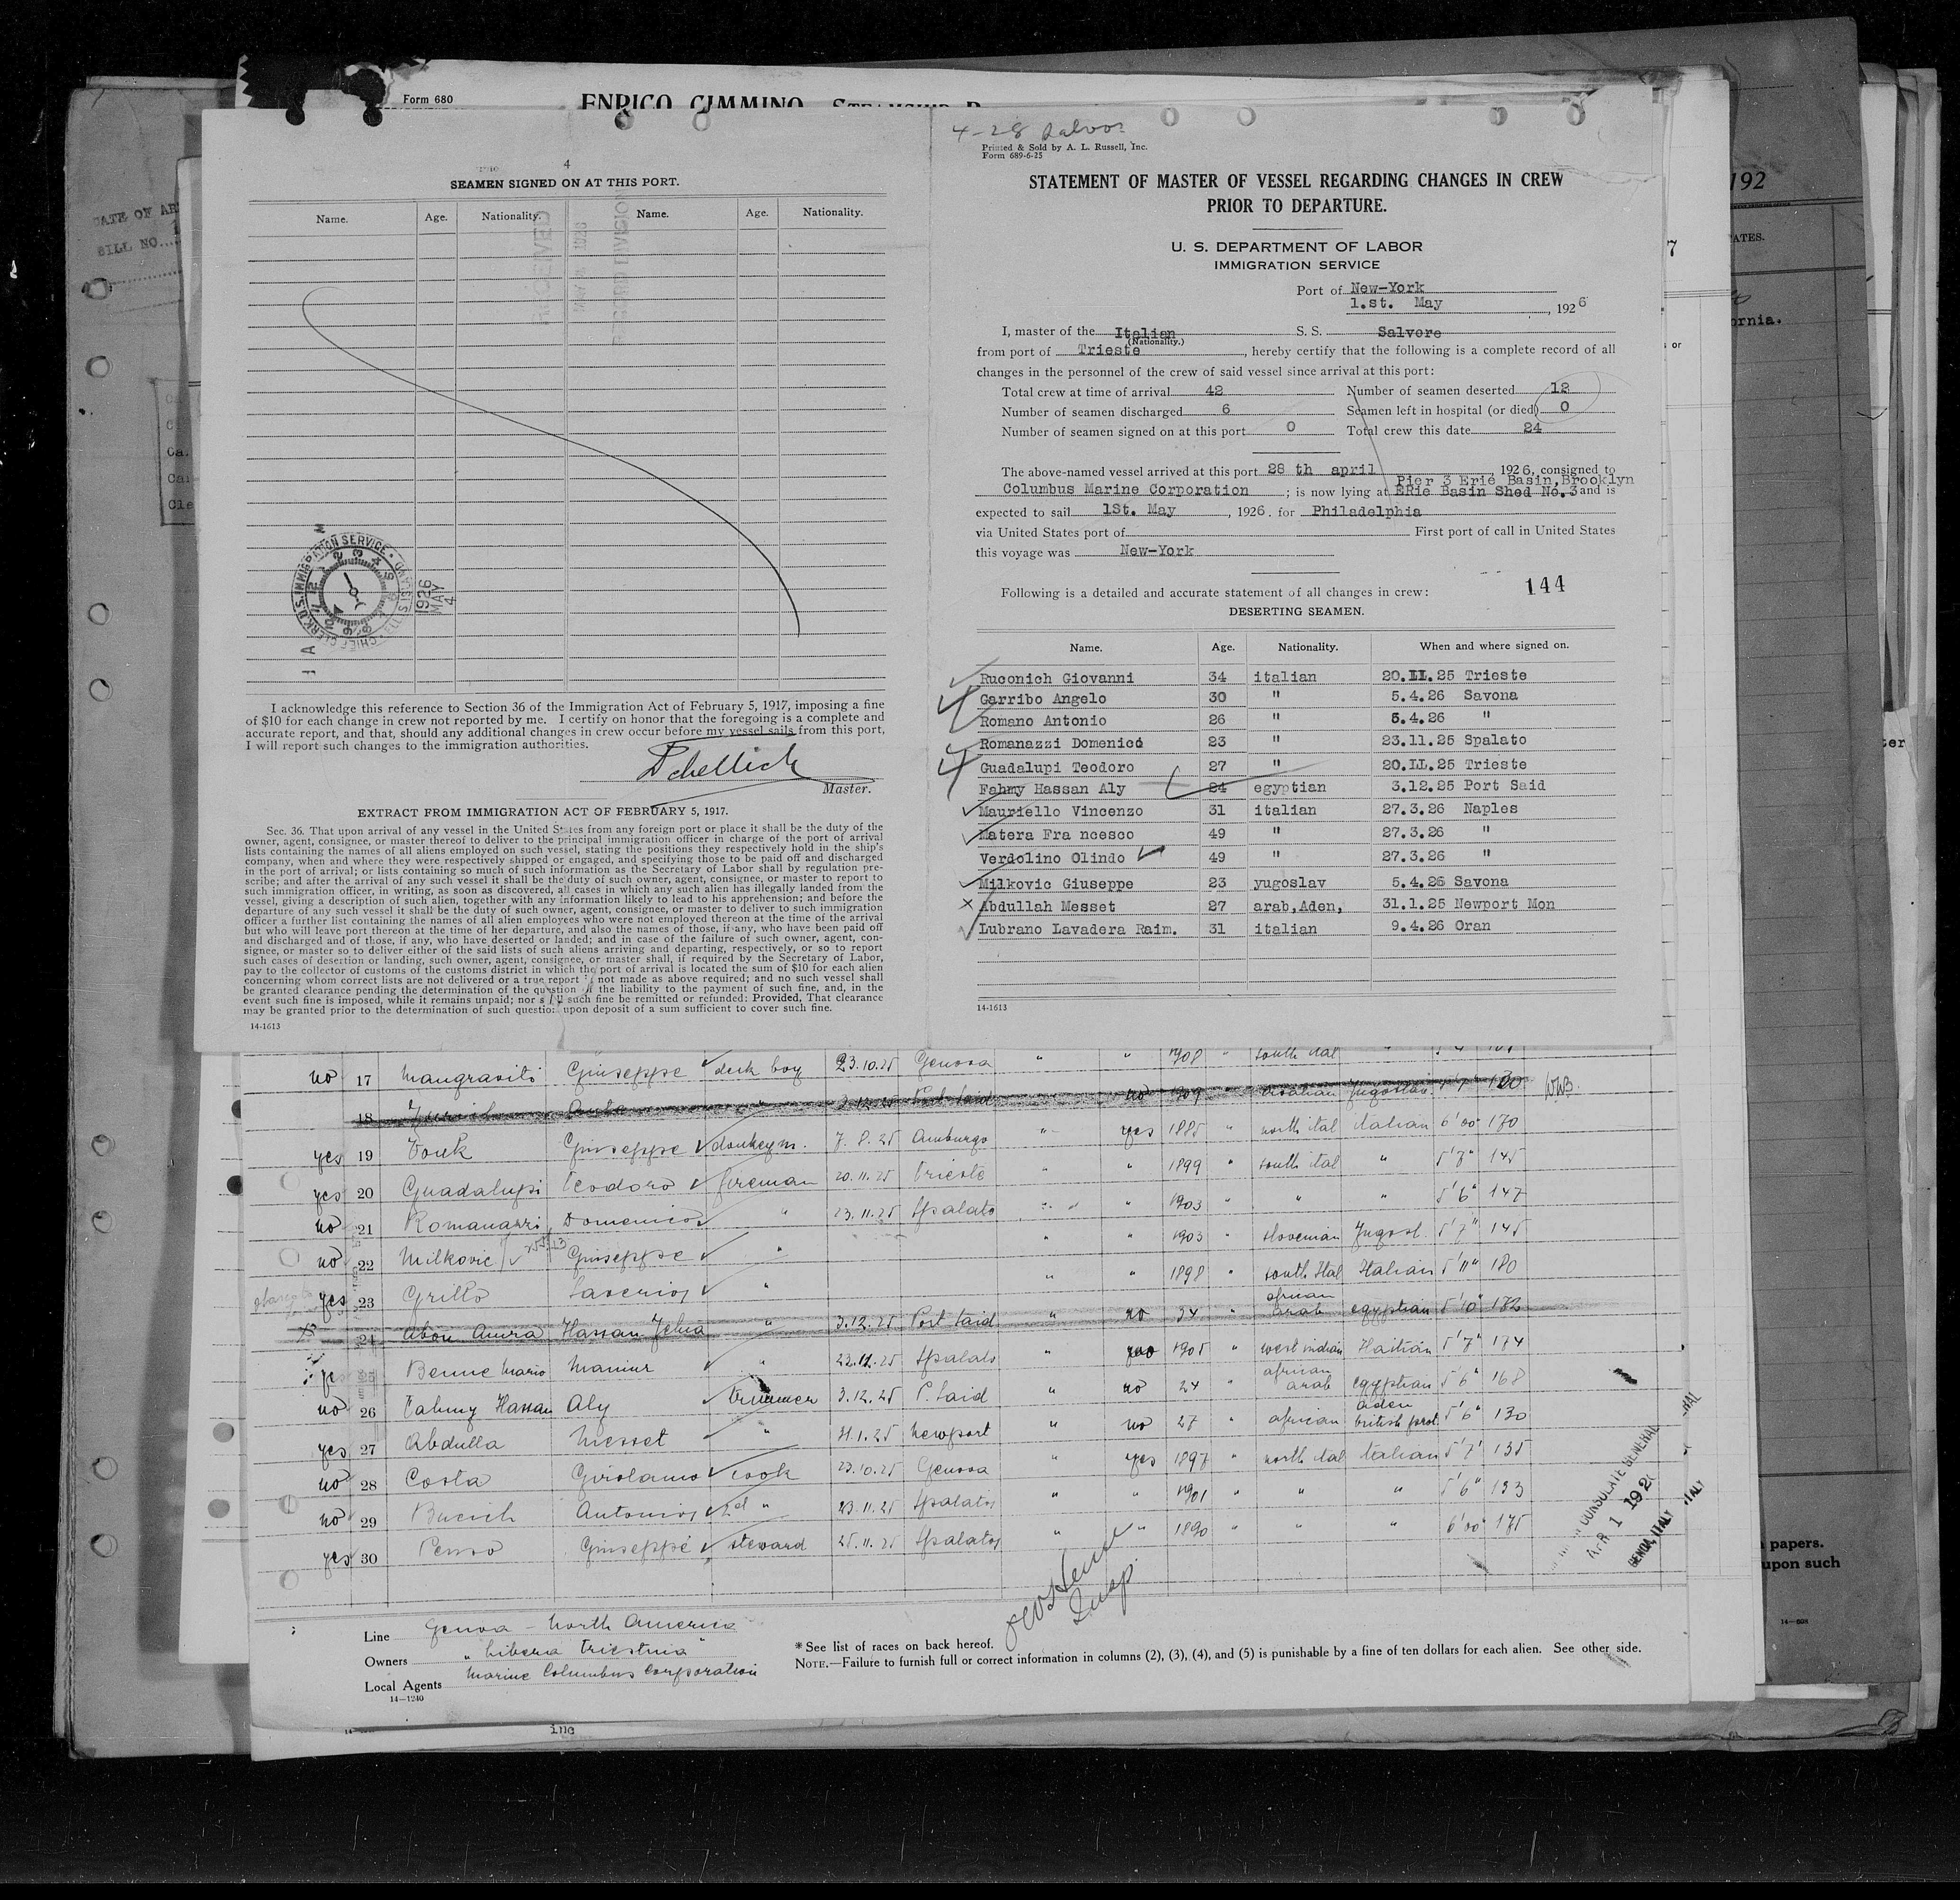 Form 680
ENRICO CIMMINO,
4
SEAMEN SIGNED ON AT THIS PORT.
Name. Age. Nationality. Name. Age. Nationality.
U.S. IMMIGRATION SERVICE
1926
MAY
4
I acknowledge this reference to Section 36 of the Immigration Act of February 5, 1917, imposing a fine
of $10 for each change in crew not reported by me. I certify on honor that the foregoing is a complete and
accurate report, and that, should any additional changes in crew occur before my vessel sails from this port,
I will report such changes to the immigration authorities.
Master.
EXTRACT FROM IMMIGRATION ACT OF FEBRUARY 5, 1917.
Sec. 36. That upon arrival of any vessel in the United States from any foreign port or place it shall be the duty of the
owner, agent, consignee, or master thereof to deliver to the principal immigration officer in charge of the port of arrival
lists containing the names of all aliens employed on such vessel, stating the positions they respectively hold in the ship's
company, when and where they were respectively shipped or engaged, and specifying those to be paid off and discharged
in the port of arrival; or lists containing so much of such information as the Secretary of Labor shall by regulation pre-
scribe; and after the arrival of any such vessel it shall be the duty of such owner, agent, consignee, or master to report to
such immigration officer, in writing, as soon as discovered, all cases in which any such alien has illegally landed from the
vessel, giving a description of such alien, together with any information likely to lead to his apprehension; and before the
departure of any such vessel it shall be the duty of such owner, agent, consignee, or master to deliver to such immigration
officer a further list containing the names of all alien employees who were not employed thereon at the time of the arrival
but who will leave port thereon at the time of her departure, and also the names of those, if any, who have been paid off
and discharged and of those, if any, who have deserted or landed; and in case of the failure of such owner, agent, con-
signee, or master so to deliver either of the said lists of such aliens arriving and departing, respectively, or so to report
such cases of desertion or landing, such owner, agent, consignee, or master shall, if required by the Secretary of Labor,
pay to the collector of customs of the customs district in which the port of arrival is located the sum of $10 for each alien
concerning whom correct lists are not delivered or a true report is not made as above required; and no such vessel shall
be granted clearance pending the determination of the question of the liability to the payment of such fine, and, in the
event such fine is imposed, while it remains unpaid; nor shall such fine be remitted or refunded: Provided, That clearance
may be granted prior to the determination of such question upon deposit of a sum sufficient to cover such fine.
14-1613
4-28 Salvor
Printed & Sold by A. L. Russell, Inc.
Form 689-6-25
STATEMENT OF MASTER OF VESSEL REGARDING CHANGES IN CREW
PRIOR TO DEPARTURE.
U. S. DEPARTMENT OF LABOR
IMMIGRATION SERVICE
Port of New-York
1.st. May, 1926
I, master of the Italian S. S. Salvore
(Nationality.)
from port of Trieste, hereby certify that the following is a complete record of all
changes in the personnel of the crew of said vessel since arrival at this port:
Total crew at time of arrival 42 Number of seamen deserted 12
Number of seamen discharged 6 Seamen left in hospital (or died) 0
Number of seamen signed on at this port 0 Total crew this date 24
The above-named vessel arrived at this port 28 th april, 1926, consigned to
Pier 3 Erie Basin, Brooklyn
Columbus Marine Corporation; is now lying at ERie Basin Shed No. 3 and is
expected to sail 1St. May, 1926. for Philadelphia
via United States port of First port of call in United States
this voyage was New-York
144
Following is a detailed and accurate statement of all changes in crew:
DESERTING SEAMEN.
Name. Age. Nationality. When and where signed on.
Ruconich Giovanni 34 italian 20.II.25 Trieste
Garribo Angelo 30 " 5.4.26 Savona
Romano Antonio 26 " 5.4.26 "
Romanazzi Domenico 23 " 23.11.25 Spalato
Guadalupi Teodoro 27 " 20.II.25 Trieste
Fahmy Hassan Aly 24 egyptian 3.12.25 Port Said
Mauriello Vincenzo 31 italian 27.3.26 Naples
Matera Fra ncesco 49 " 27.3.26 "
Verdolino Olindo 49 " 27.3.26 "
Milkovic Giuseppe 23 yugoslav 5.4.26 Savona
Abdullah Messet 27 arab,Aden, 31.1.25 Newport Mon
Lubrano Lavadera Raim. 31 italian 9.4.26 Oran
14-1613
no 17 Mangraviti Giuseppe deck boy 23.10.25 Genova " " 1908 " south ital "
18 3.12.25 Port Said no 1909 " Croatian Jugoslav 5'7" 130
yes 19 Giuseppe donkeym. 7.8.25 Amburgo " yes 1885 " north ital italian 6'00" 170
yes 20 Guadalupi Teodoro fireman 20.11.25 Trieste " " 1899 " south ital " 5'7" 145
no 21 Romanazzi Domenico " 23.11.25 Spalato " 1903 " " " 5'6" 147
no 22 Milkovic Giuseppe " " " 1903 slovenian Jugosl. 5'7" 145
yes 23 Grillo Saverio " " " 1898 " south Ital Italian 5'11" 180
24 Abou Amira Hassan " 3.12.25 Port Said " no 34 " african arab egyptian 5'10" 182
25 Benne Mario " 23.11.25 Spalato " 1905 " west indian Haitian 5'7" 174
no 26 Fahmy Hassan Aly trimmer 3.12.25 P. Said " no 24 " african arab egyptian 5'6" 168
yes 27 Abdulla Messet " 31.1.25 Newport " no 27 " african aden british prot. 5'6" 130
no 28 Costa Girolamo cook 23.10.25 Genova " yes 1897 " north ital italian 5'7" 135
no 29 Antonio 2d " 23.11.25 Spalato " " 1901 " " " 5'6" 133
yes 30 Penso Giuseppe steward 25.11.25 Spalato " " 1890 " " " 6'00" 175
CONSULATE GENERAL
APR 1 192
GENOA, ITALY
Line Genova - North America
Owners "Libera Triestina"
Local Agents Marine Columbus Corporation
14-1240
*See list of races on back hereof.
NOTE.—Failure to furnish full or correct information in columns (2), (3), (4), and (5) is punishable by a fine of ten dollars for each alien. See other side.
192
papers.
upon such